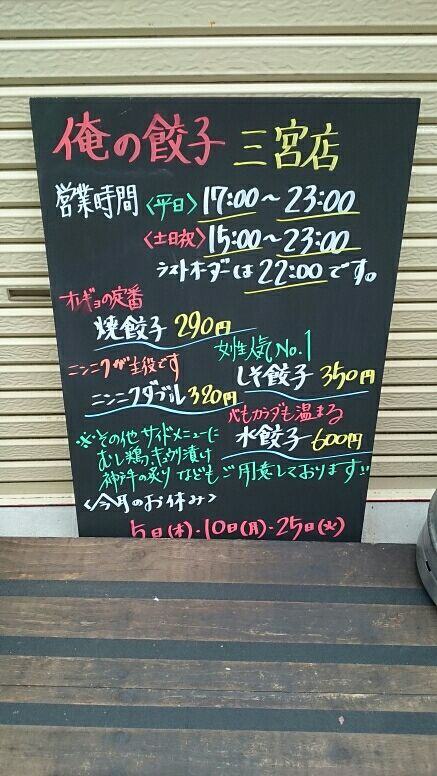 俺の餃子 三宮店
営業時間 〈平日〉 17:00〜23:00
〈土日祝〉 15:00〜23:00
ラストオーダーは 22:00です。
オレギョの定番
焼餃子 290円
女性人気No.1
ニンニクが主役です
しそ餃子 350円
ニンニクダブル 320円
心もカラダも温まる
水餃子 600円
※その他サイドメニューに
むし鶏、キュウリ漬け
神戸牛の炙りなどもご用意しております!!
〈今月のお休み〉
5日(木)・10日(月)・25日(火)